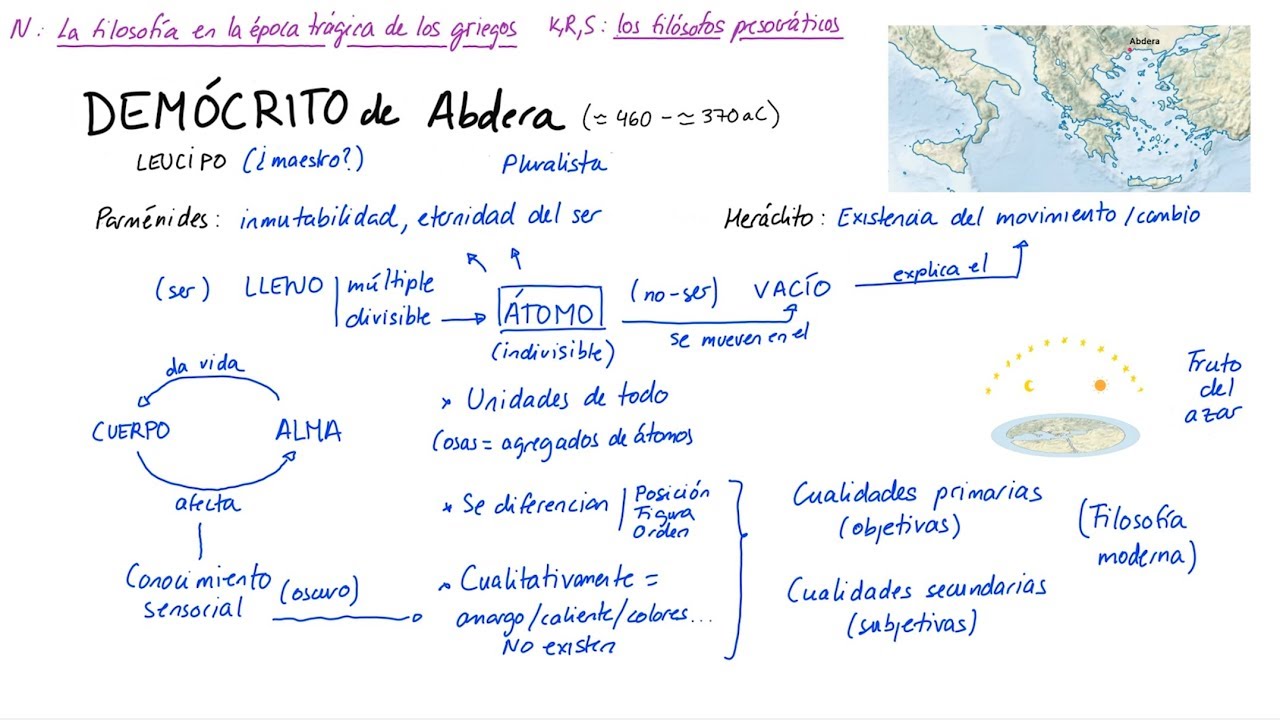 N: La filosofía en la época trágica de los griegos K,R,S: los filósofos presocráticos
Abdera
DEMÓCRITO de Abdera (≃ 460 - ≃ 370 aC)
LEUCIPO (¿maestro?) Pluralista
Parménides: inmutabilidad, eternidad del ser
Heráclito: Existencia del movimiento/cambio
(ser) LLENO múltiple
divisible
ÁTOMO
(indivisible)
(no-ser) VACÍO
se mueven en el
explica el
da vida
CUERPO ALMA
afecta
Conocimiento
sensorial
(oscuro)
* Unidades de todo
Cosas = agregados de átomos
* Se diferencian Posición
Figura
Orden
* Cualitativamente =
amargo/caliente/colores...
No existen
Fruto
del
azar
Cualidades primarias
(objetivas)
Cualidades secundarias
(subjetivas)
(Filosofía
moderna)